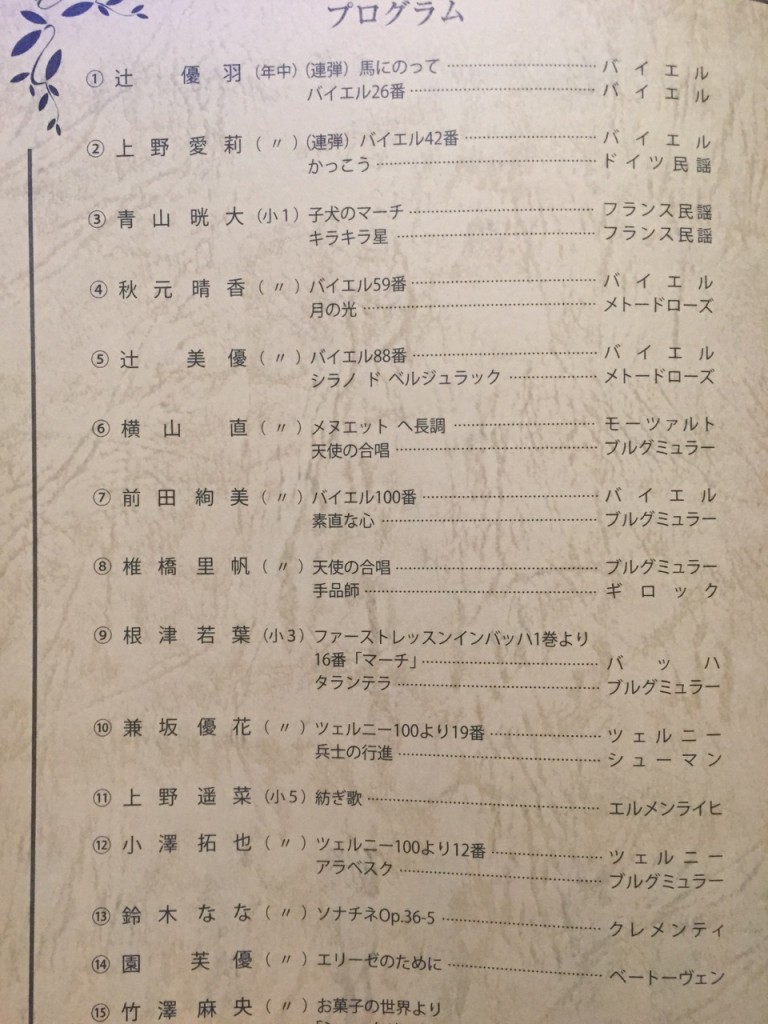 プログラム
① 辻 優羽 (年中) (連弾) 馬にのって ……… バイエル
バイエル26番 ……… バイエル
② 上野愛莉 (〃) (連弾) バイエル42番 ……… バイエル
かっこう ……… ドイツ民謡
③ 青山晄大 (小1) 子犬のマーチ ……… フランス民謡
キラキラ星 ……… フランス民謡
④ 秋元晴香 (〃) バイエル59番 ……… バイエル
月の光 ……… メトードローズ
⑤ 辻 美優 (〃) バイエル88番 ……… バイエル
シラノ ド ベルジュラック ……… メトードローズ
⑥ 横山 直 (〃) メヌエット ヘ長調 ……… モーツァルト
天使の合唱 ……… ブルグミュラー
⑦ 前田絢美 (〃) バイエル100番 ……… バイエル
素直な心 ……… ブルグミュラー
⑧ 椎橋里帆 (〃) 天使の合唱 ……… ブルグミュラー
手品師 ……… ギロック
⑨ 根津若葉 (小3) ファーストレッスンインバッハ1巻より
16番「マーチ」 ……… バッハ
タランテラ ……… ブルグミュラー
⑩ 兼坂優花 (〃) ツェルニー100より19番 ……… ツェルニー
兵士の行進 ……… シューマン
⑪ 上野遥菜 (小5) 紡ぎ歌 ……… エルメンライヒ
⑫ 小澤拓也 (〃) ツェルニー100より12番 ……… ツェルニー
アラベスク ……… ブルグミュラー
⑬ 鈴木なな (〃) ソナチネOp.36-5 ……… クレメンティ
⑭ 園 芙優 (〃) エリーゼのために ……… ベートーヴェン
⑮ 竹澤麻央 (〃) お菓子の世界より